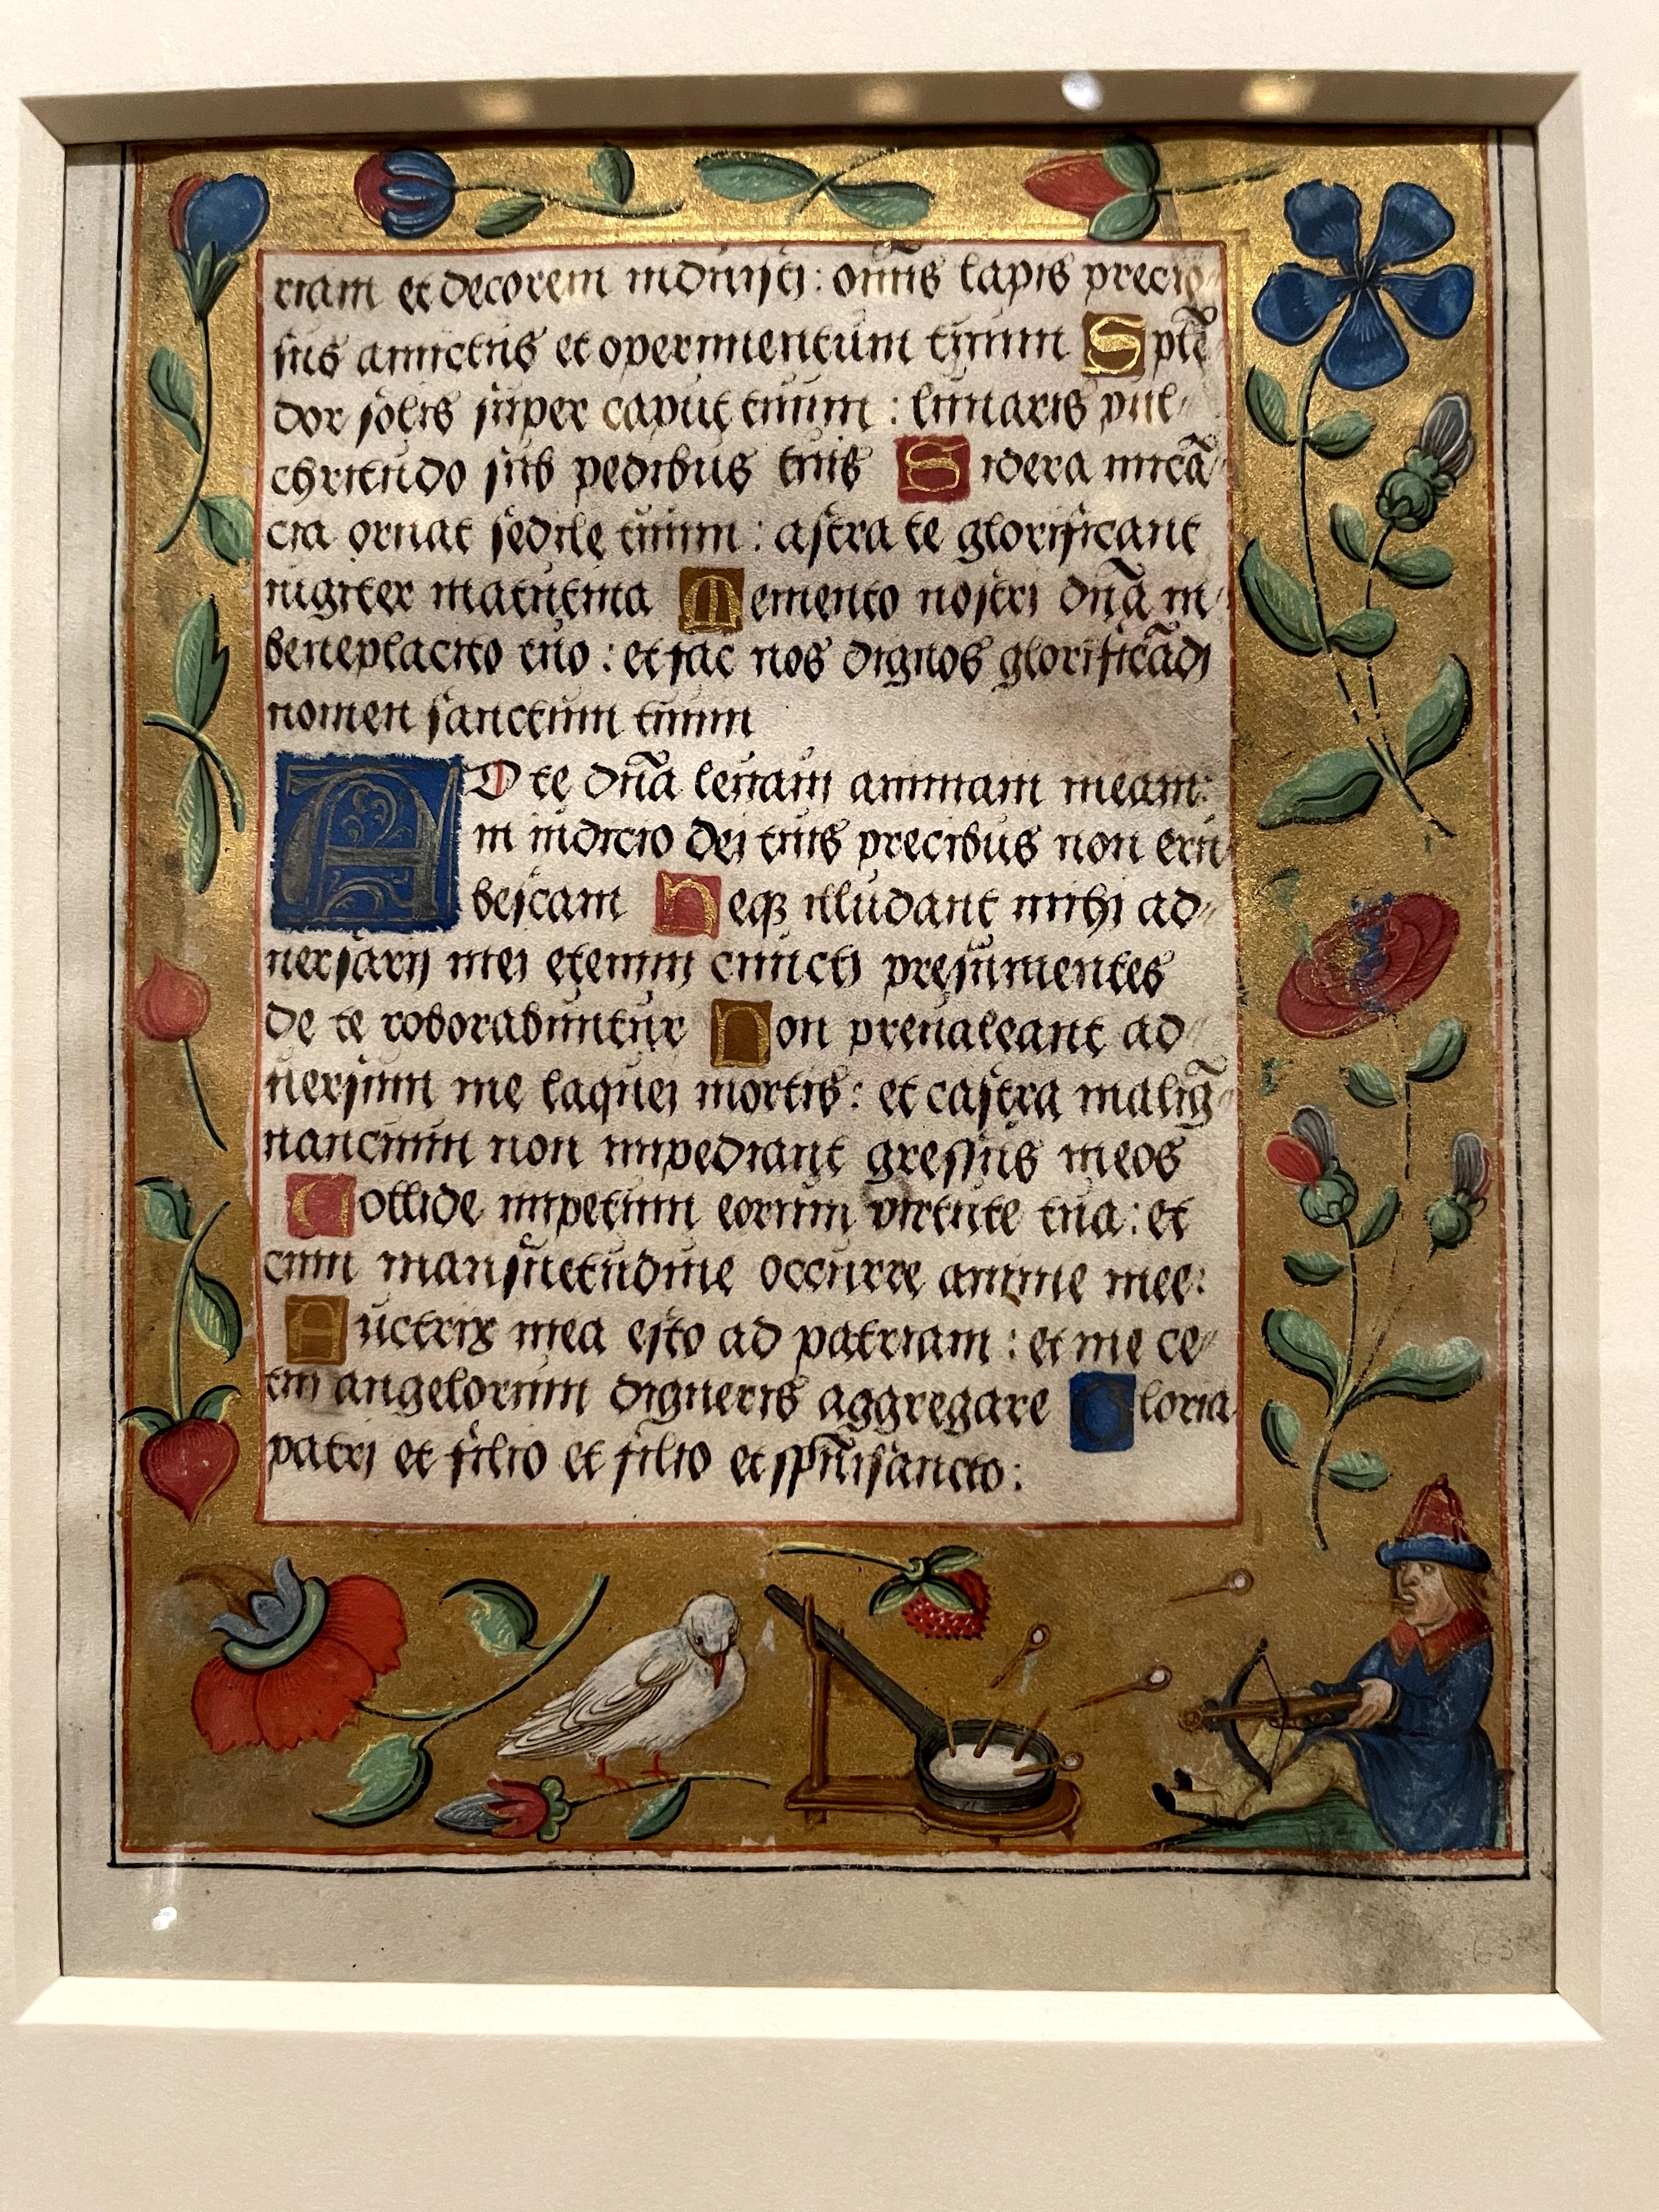 riam et decorem induisti: om̅is lapis precio-
sus amictus et operimentum tuum Sple̅-
dor solis super caput tuum : lunaris pul-
chritudo sub pedibus tuis Sidera mica̅-
cia ornat sedile tuum : astra te glorificant
iugiter matutina Memento nostri dn̅a in
beneplacito tuo : et fac nos dignos glorifica̅di
nomen sanctum tuum
AD te dn̅a leuaui animam meam:
in iudicio dei tuis precibus non eru-
bescam Neqꝫ illudant mihi ad-
uersarij mei etenim cuncti presumentes
de te roborabuntur Non preualeant ad-
uersum me laquei mortis: et castra malig̅-
nancium non impediant gressus meos
Collide impetum eorum virtute tua: et
cum mansuetudine occurre anime mee:
Auctrix mea esto ad patriam : et me ce-
tui angelorum digneris aggregare Gloria
patri et filio et filio et spu̅isancto:
63